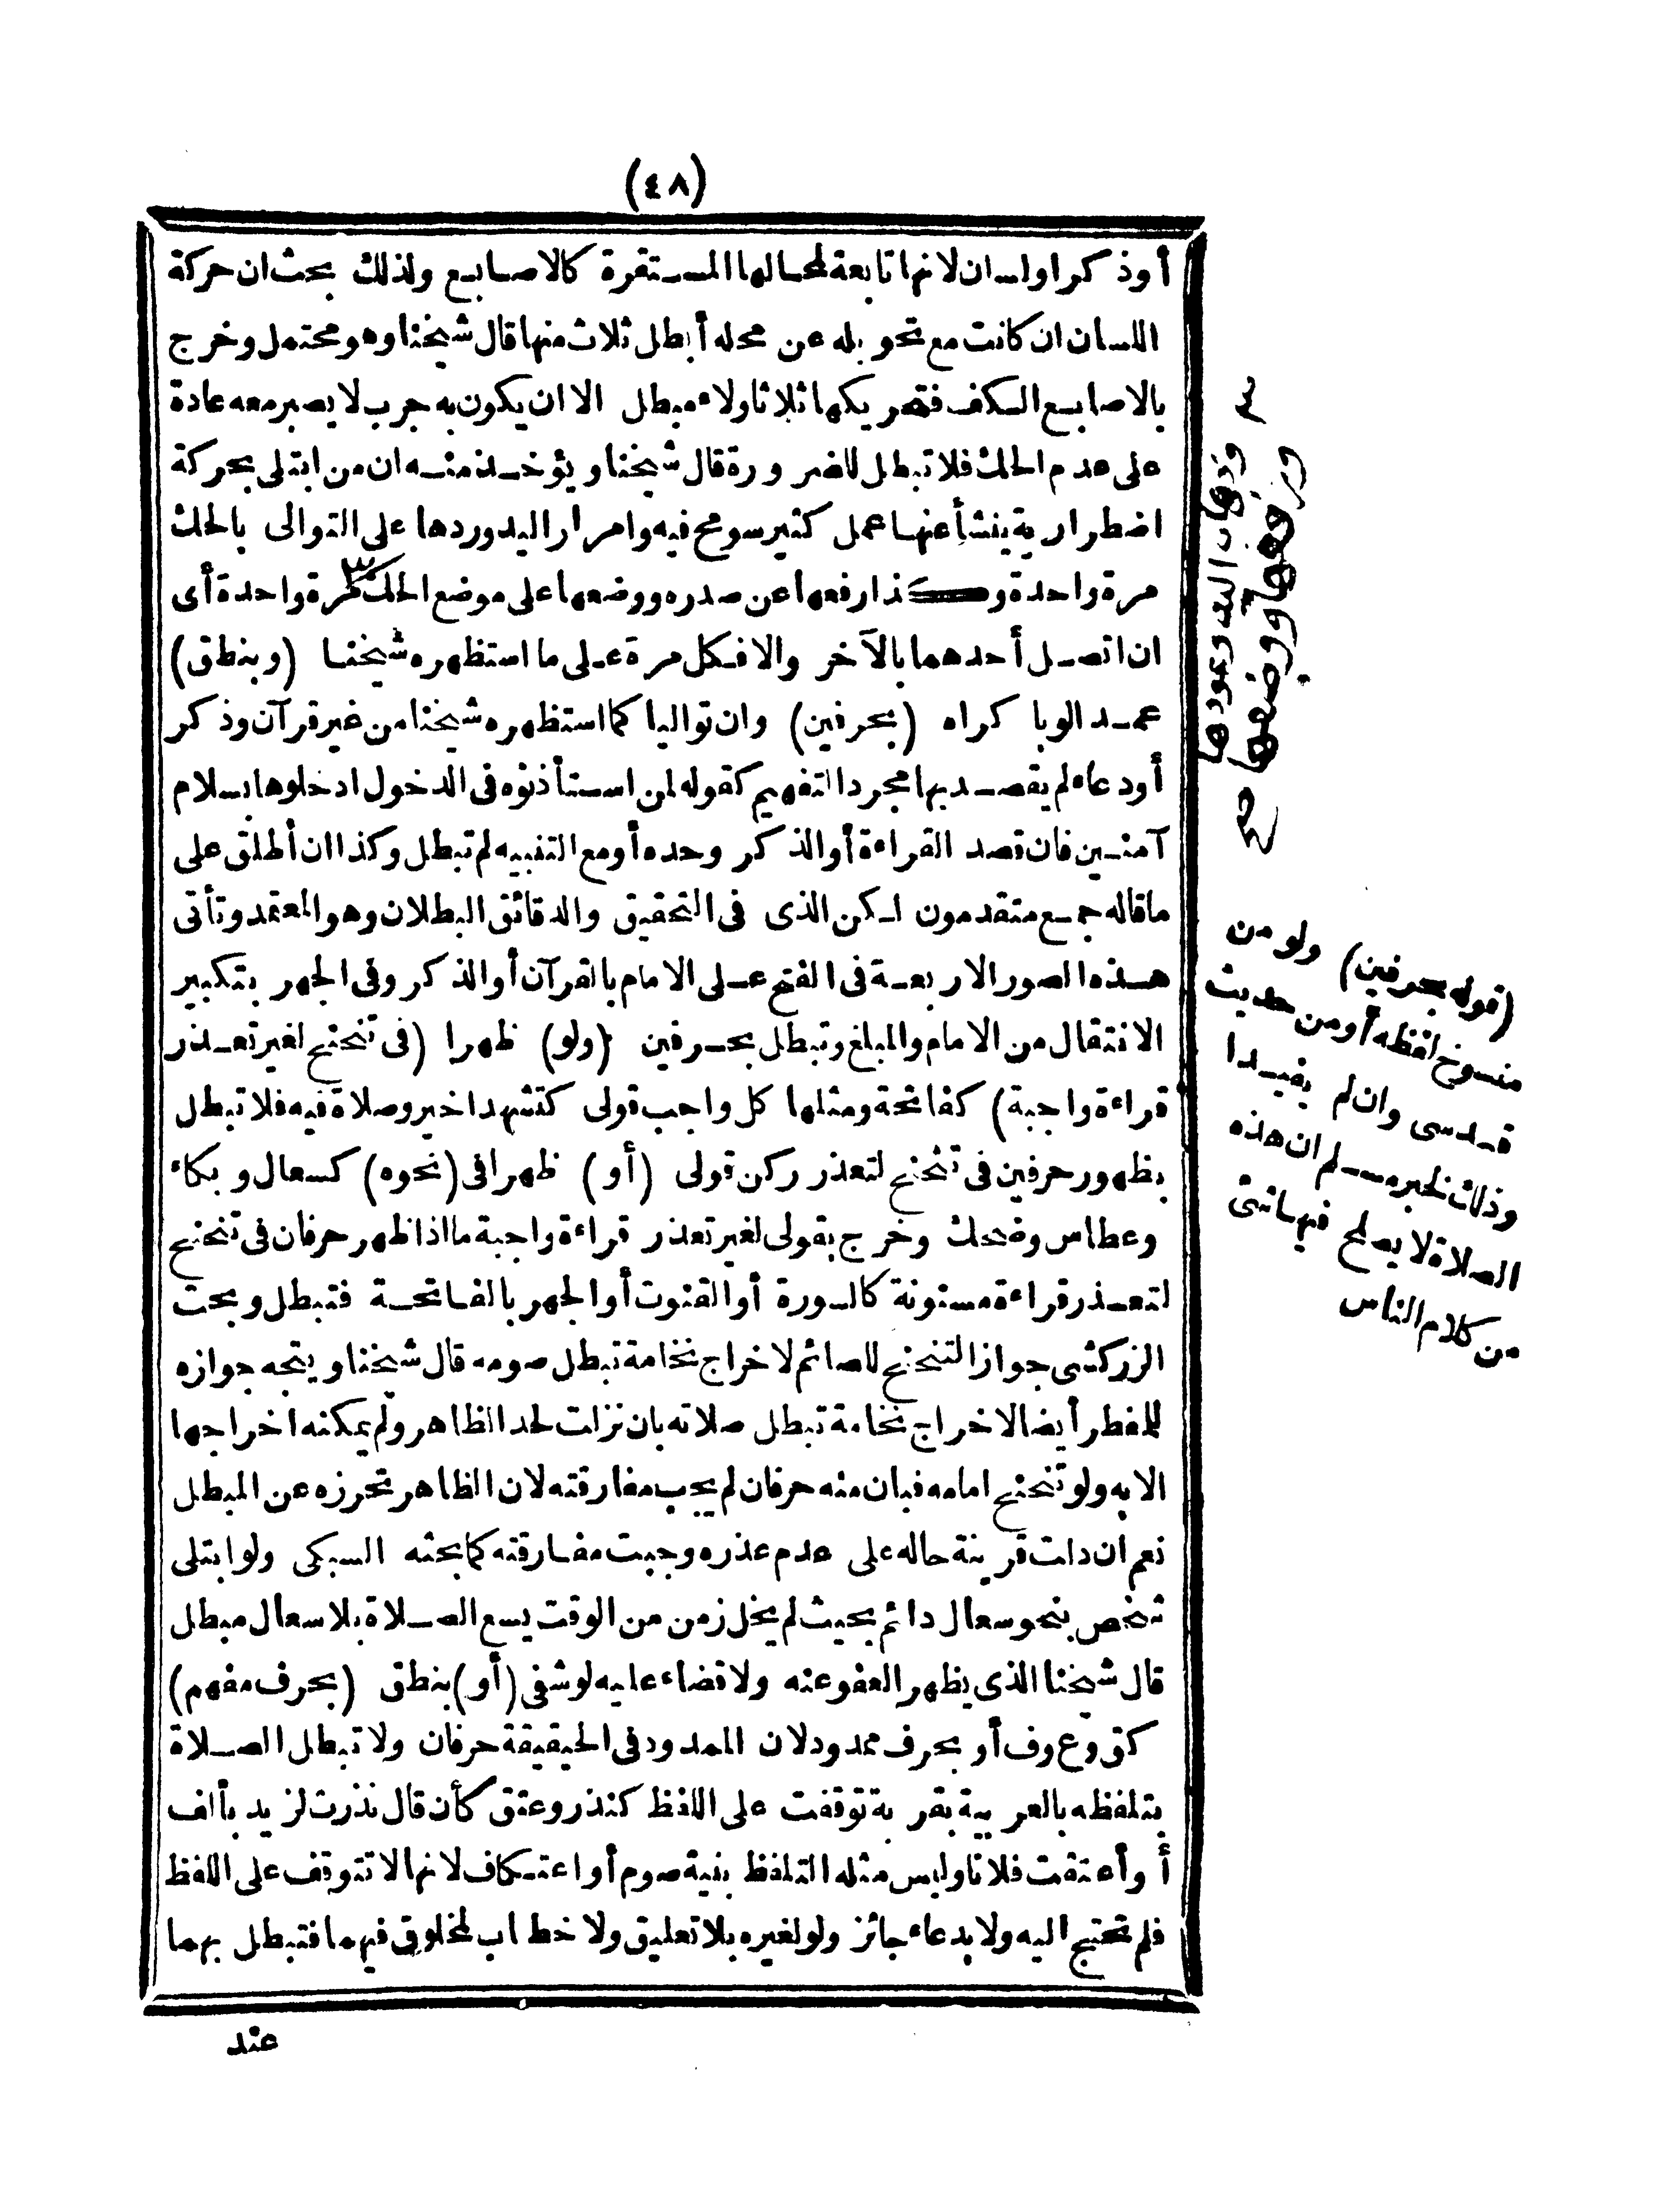 (٤٨)
أوذكر اولسان لانها تابعة لمحالها المستقرة كالاصابع ولذلك بحث ان حركة
اللسان ان كانت مع تحويله عن محله أبطل ثلاث منها قال شيخنا وهو محتمل وخرج
بالاصابع الكف فتحريكها ثلاثا ولاء مبطل الا ان يكون به جرب لا يصبر معه عادة
على عدم الحك فلا تبطل للضرورة قال شيخنا ويؤخذ منه ان من ابتلى بحركة
اضطرارية ينشأ عنها عمل كثير سومح فيه وامرار اليد وردها على التوالى بالحك
مرة واحدة وكذا رفعها عن صدره ووضعها على موضع الحك ٣ مرة واحدة أى
ان اتصل أحدهما بالآخر والا فكل مرة على ما استظهره شيخنا (وبنطق)
عمدا ولو باكراه (بحرفين) وان تواليا كما استظهره شيخنا من غير قرآن وذكر
أودعاء لم يقصد بها مجرد التفهيم كقوله لمن استأذنوه فى الدخول ادخلوها بسلام
آمنين فان قصد القراءة أو الذكر وحده أو مع التنبيه لم تبطل وكذا ان أطلق على
ما قاله جمع متقدمون لكن الذى فى التحقيق والدقائق البطلان وهو المعتمد وتأتى
هذه الصور الاربعة فى الفتح على الامام بالقرآن أو الذكر وفى الجهر بتكبير
الانتقال من الامام والمبلغ وتبطل بحرفين (ولو) ظهرا (فى تنحنح لغير تعذر
قراءة واجبة) كفاتحة ومثلها كل واجب قولى كتشهد اخير وصلاة فيه فلا تبطل
بظهور حرفين فى تنحنح لتعذر ركن قولى (أو) ظهرا فى (نحوه) كسعال وبكاء
وعطاس وضحك وخرج بقولى لغير تعذر قراءة واجبة ما اذا ظهر حرفان فى تنحنح
لتعذر قراءة مسنونة كالسورة أو القنوت أو الجهر بالفاتحة فتبطل وبحث
الزركشى جواز التنحنح للصائم لاخراج نخامة تبطل صومه قال شيخنا ويتجه جوازه
للمفطر أيضا لاخراج نخامة تبطل صلاته بان نزلت لحد الظاهر ولم يمكنه اخراجها
الا به ولو تنحنح امامه فبان منه حرفان لم يجب مفارقته لان الظاهر تحرزه عن المبطل
نعم ان دلت قرينة حاله على عدم عذره وجبت مفارقته كما بحثه السبكى ولو ابتلى
شخص بنحو سعال دائم بحيث لم يخل زمن من الوقت يسع الصلاة بلا سعال مبطل
قال شيخنا الذى يظهر العفو عنه ولا قضاء عليه لو شفى (أو) بنطق (بحرف مفهم)
كق وع وف أو بحرف ممدود لان الممدود فى الحقيقة حرفان ولا تبطل الصلاة
بتلفظه بالعربية بقربة توقفت على اللفظ كنذر وعتق كأن قال نذرت لزيد بألف
أ وأعتقت فلانا وليس مثله التلفظ بنية صوم أو اعتكاف لانها لا تتوقف على اللفظ
فلم تحتج اليه ولا بدعاء جائز ولو لغيره بلا تعليق ولا خطاب لمخلوق فيهما فتبطل بهما
عند
٣
وذهاب اليد وعودها
ورفعها ووضعها
صح
(قوله بحرفين) ولو من
منسوخ لفظه أو من حديث
قدسى وان لم يفيدا
وذلك لخبر مسلم ان هذه
الصلاة لا يصلح فيها شئ
من كلام الناس